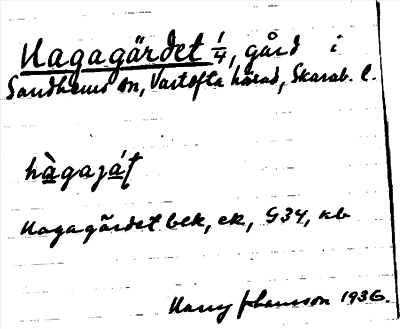 Hagagärdet 1/4, gård i
Sandhems sn, Vartofta härad, Skarab. l.
hàgajáʈ
Hagagärdet bek, ek, G34, kb
Harry Johansson 1936.